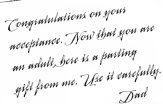 Congratulations on your
acceptance. Now that you are
an adult, here is a parting
gift from me. Use it carefully.
Dad